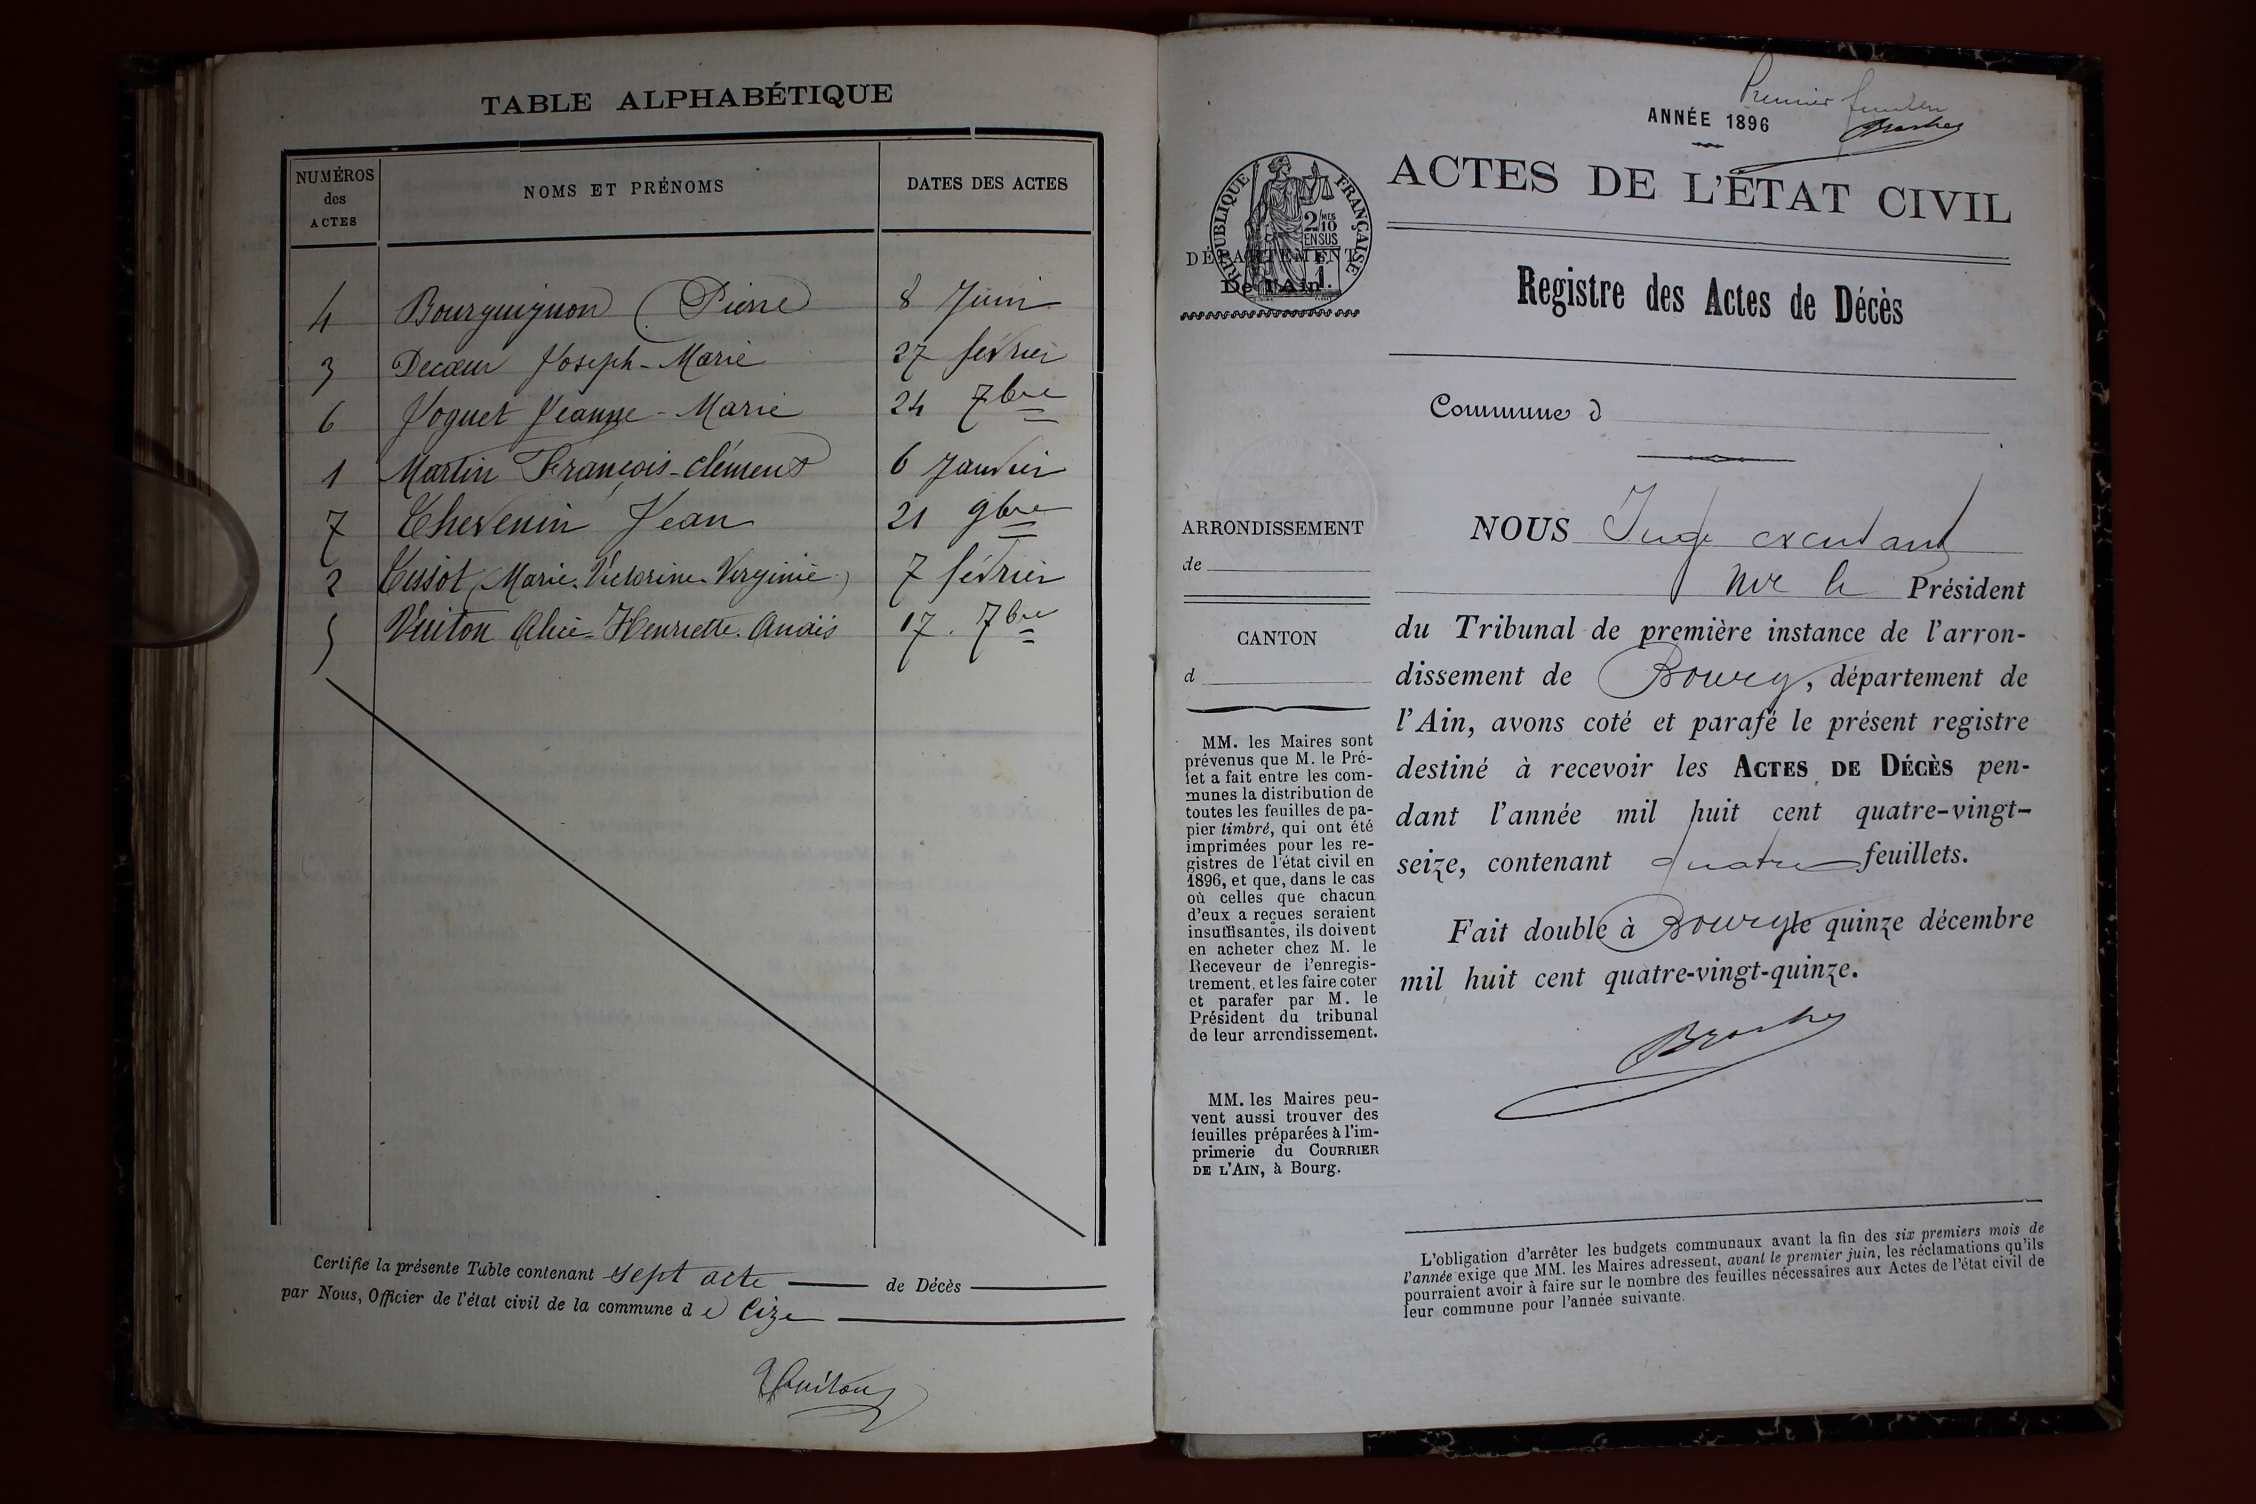 TABLE ALPHABÉTIQUE
NUMÉROS
des
ACTES
NOMS ET PRÉNOMS
DATES DES ACTES
4 Bourguignon (Pierre) 8 Juin
3 Decœur Joseph-Marie 27 février
6 Joguet Jeanne-Marie 24 7bre
1 Martin François-Clément 6 Janvier
7 Thevenin Jean 21 9bre
2 Tissot (Marie-Victorine-Virginie) 7 février
5 Vuiton Alice-Henriette-Anaïs 17. 7bre
Certifie la présente Table contenant sept acte de Décès
par Nous, Officier de l'état civil de la commune de Cize
Vuiton
Premier feuillet
ANNÉE 1896
ACTES DE L'ÉTAT CIVIL
RÉPUBLIQUE FRANÇAISE
2/10MES
EN SUS
DÉPARTEMENT
De l'Ain.
Registre des Actes de Décès
Commune d
ARRONDISSEMENT
de
CANTON
d
MM. les Maires sont
prévenus que M. le Pré-
fet a fait entre les com-
munes la distribution de
toutes les feuilles de pa-
pier timbré, qui ont été
imprimées pour les re-
gistres de l'état civil en
1896, et que, dans le cas
où celles que chacun
d'eux a reçues seraient
insuffisantes, ils doivent
en acheter chez M. le
Receveur de l'enregis-
trement, et les faire coter
et parafer par M. le
Président du tribunal
de leur arrondissement.
MM. les Maires peu-
vent aussi trouver des
feuilles préparées à l'im-
primerie du COURRIER
DE L'AIN, à Bourg.
NOUS Juge
Président
du Tribunal de première instance de l'arron-
dissement de Bourg, département de
l'Ain, avons coté et parafé le présent registre
destiné à recevoir les ACTES DE DÉCÈS pen-
dant l'année mil huit cent quatre-vingt-
seize, contenant quatre feuillets.
Fait double à Bourg le quinze décembre
mil huit cent quatre-vingt-quinze.
L'obligation d'arrêter les budgets communaux avant la fin des six premiers mois de
l'année exige que MM. les Maires adressent, avant le premier juin, les réclamations qu'ils
pourraient avoir à faire sur le nombre des feuilles nécessaires aux Actes de l'état civil de
leur commune pour l'année suivante.